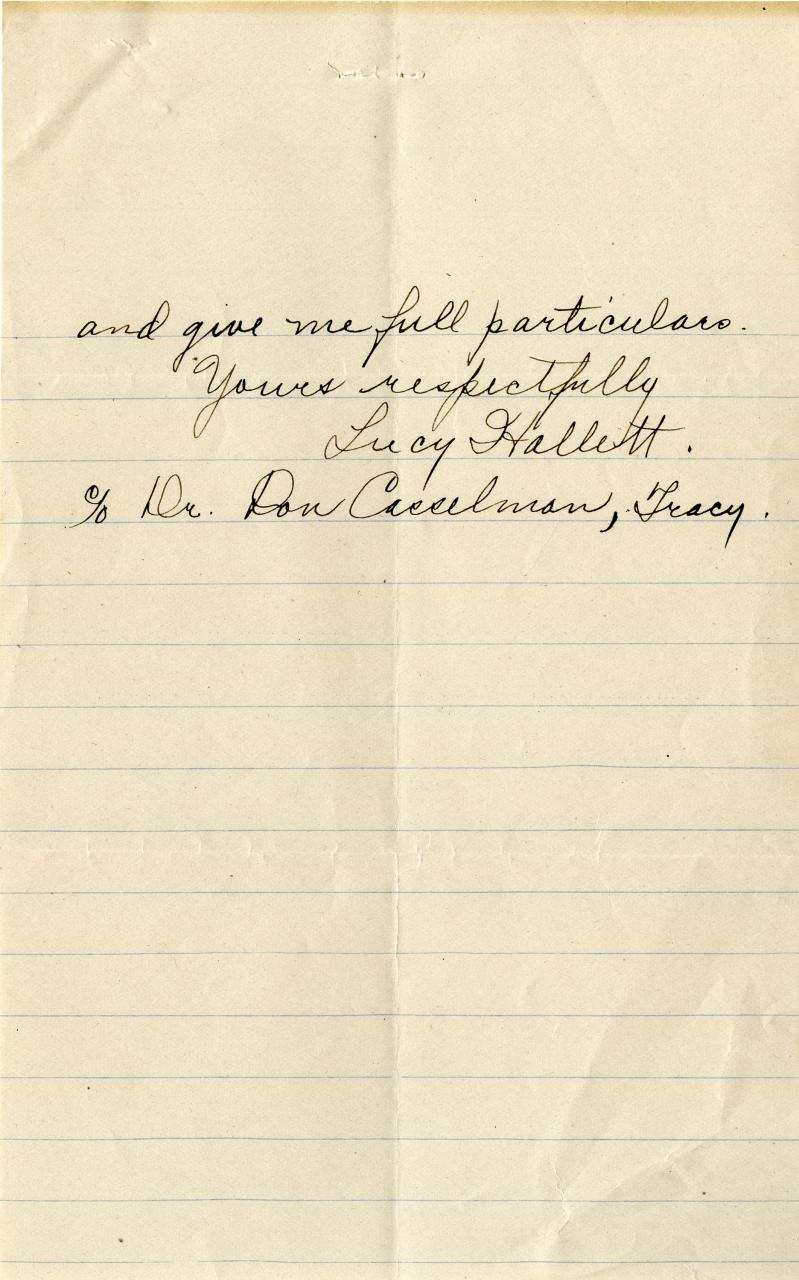 and give me full particulars.
Yours respectfully
Lucy Hallett.
c/o Dr. Don Casselman, Tracy.